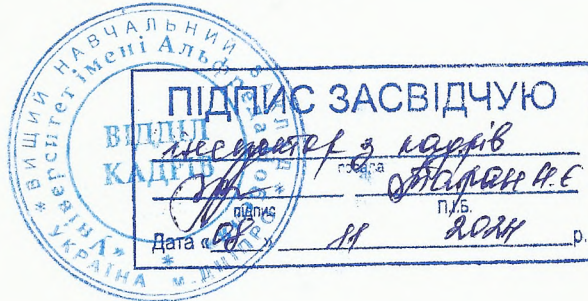 ВИЩИЙ НАВЧАЛЬНИЙ ЗАКЛАД
Університет імені Альфреда Нобеля
* УКРАЇНА * м. ДНІПРО *
ВІДДІЛ
КАДРІВ
ПІДПИС ЗАСВІДЧУЮ
інспектор з кадрів
посада
Таран Н.Є
підпис П.І.Б.
Дата «08» 11 2024 р.